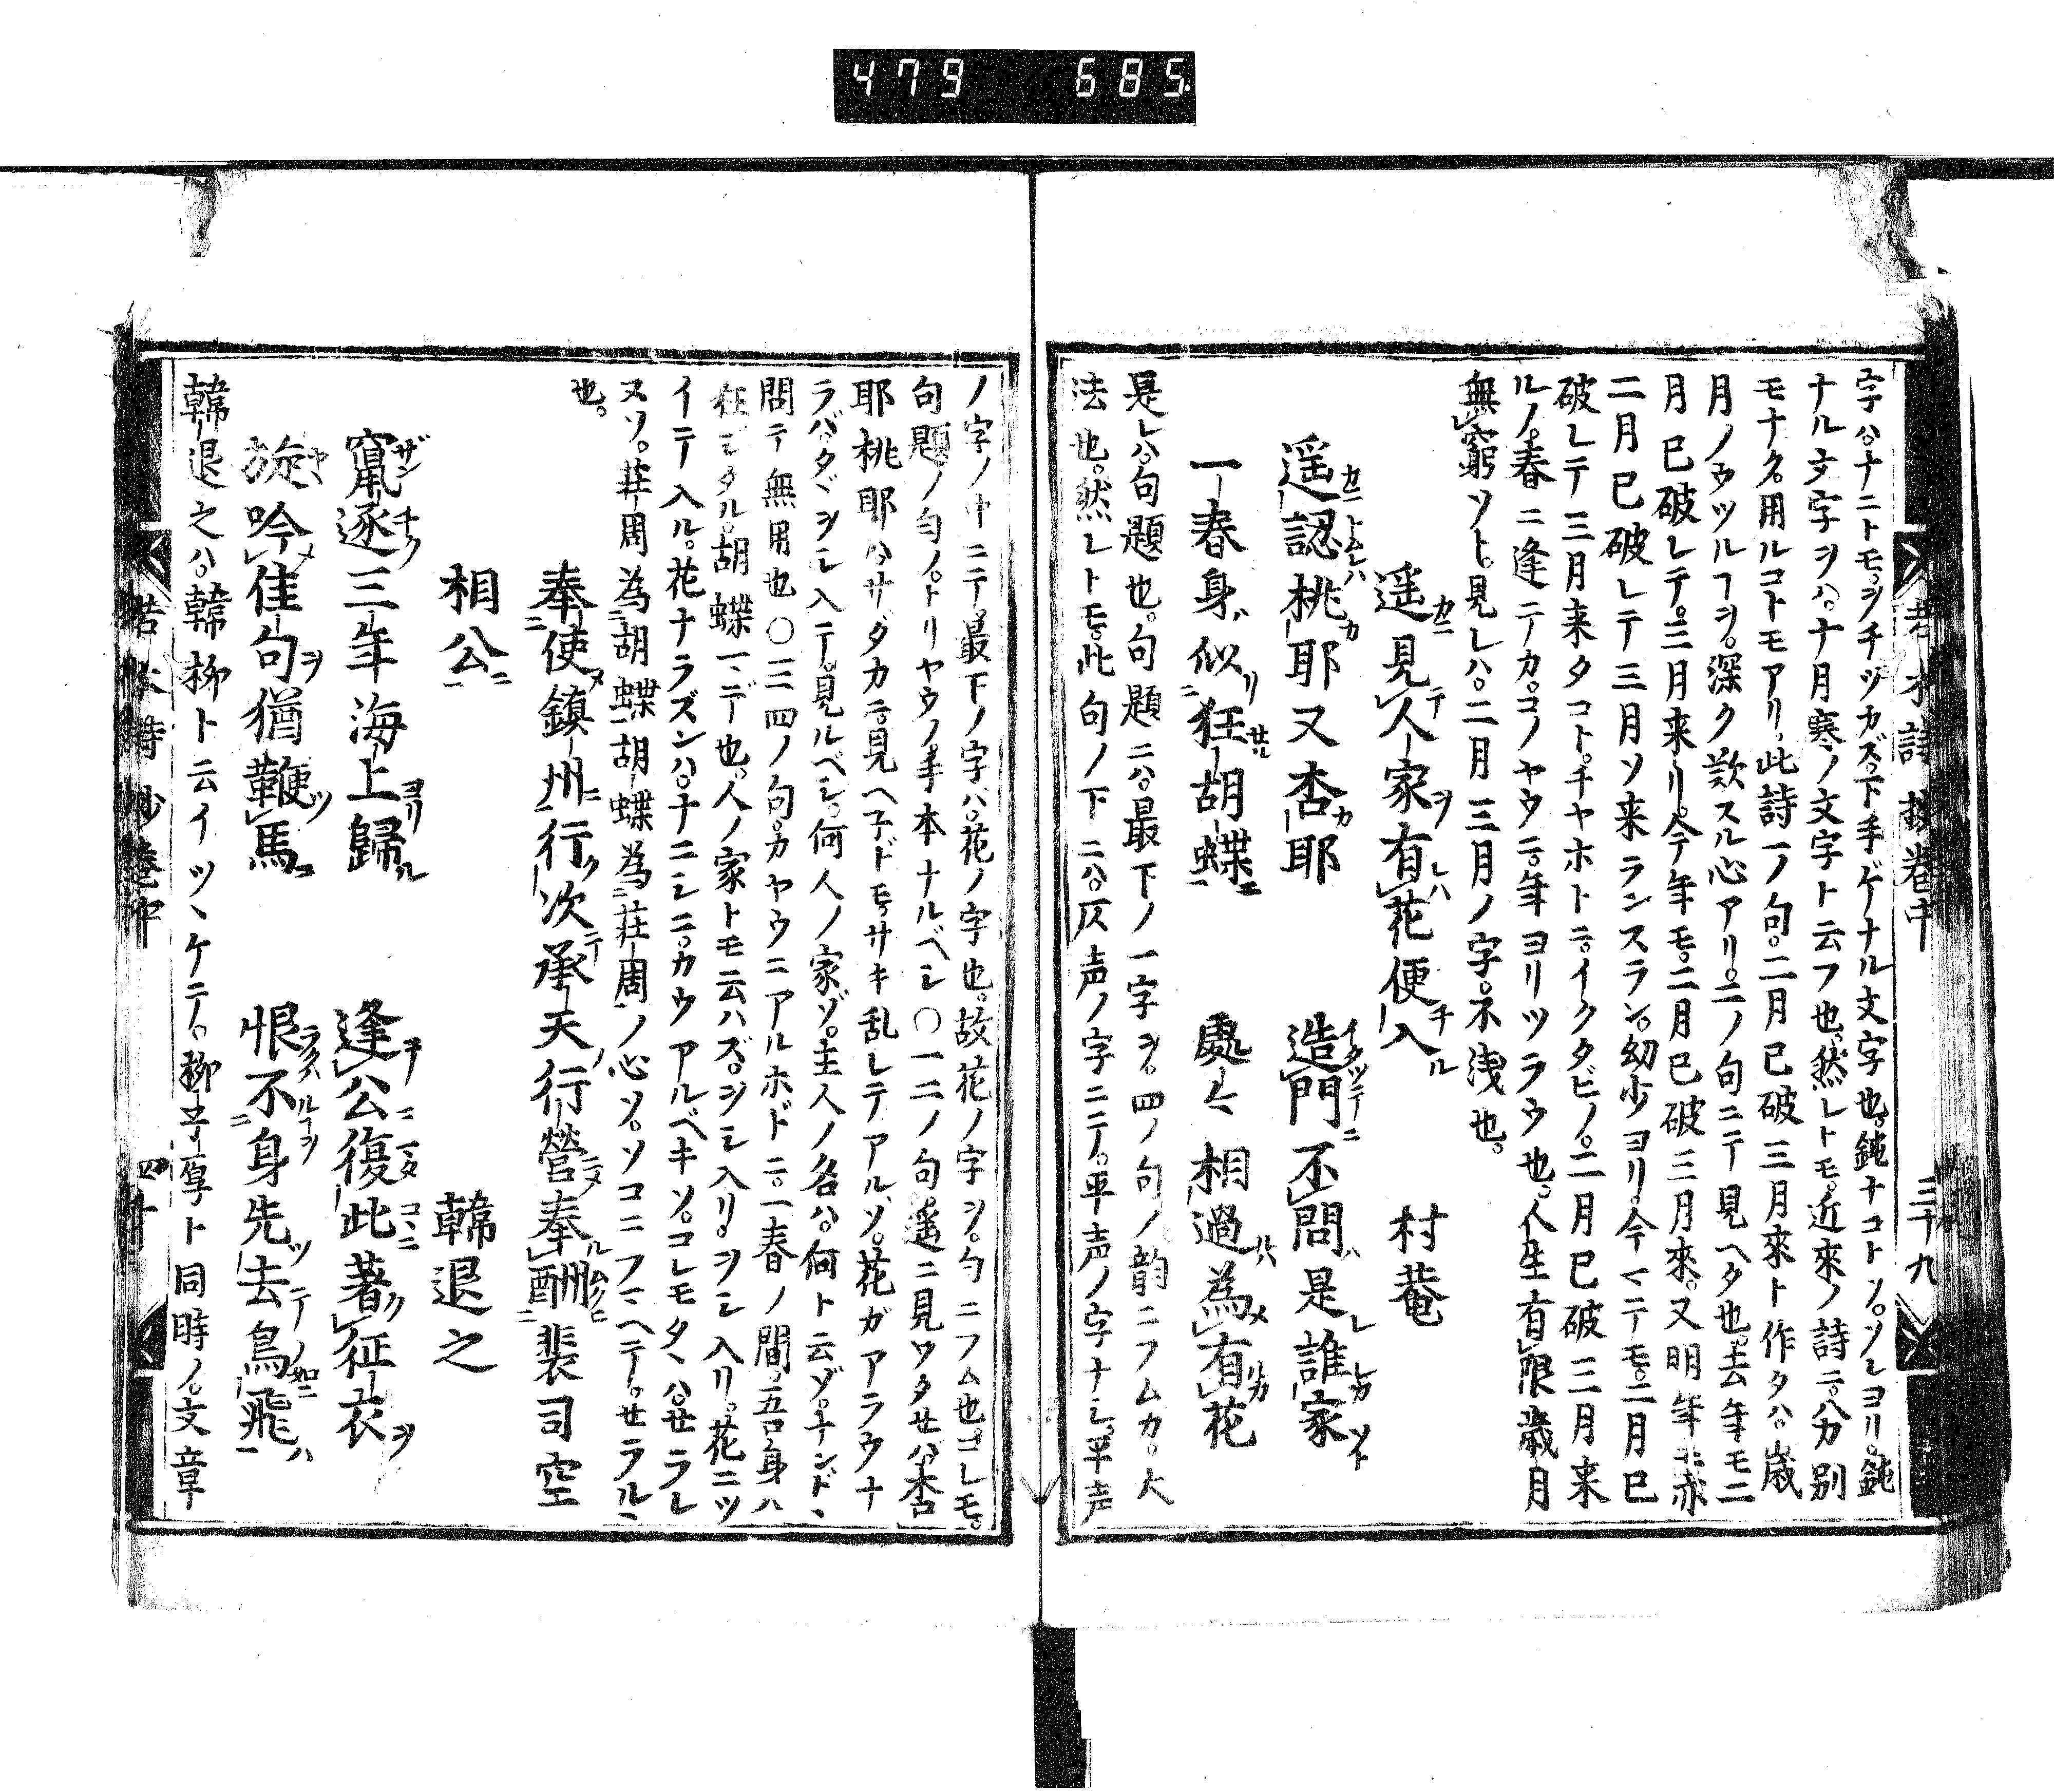 479 685
若木詩抄巻中 三十九
字ハ。ナニトモ。ヲチツカズ。下手ゲナル文字也。鈍ナコトソ。ソレヨリ。鈍
ナル文字ヲハ。十月寒ノ文字ト云フ也。然レトモ。近来ノ詩ニハ。分別
モナク。用ルコトモアリ。此詩一ノ句。二月已破三月來ト作タハ。歳
月ノウツルヿヲ。深ク歎スル心アリ。二ノ句ニテ見ヘタ也。去年モ二
月已破レテ。三月来リ。今年モ。二月已破三月來。又明年モ亦
二月已破レテ三月ソ来ランスラン。幼少ヨリ。今マテモ。二月已
破レテ三月来タコト。チヤホトニ。イクタビノ。二月已破三月来
ルノ。春ニ逢テカ。コノヤウニ。年ヨリツラウ也。人生有限歳月
無窮ソト。見レハ。二月三月ノ字。不浅也。
遥見人家有花便入 村菴
遥認桃耶又杏耶 造門不問是誰家
一春身似狂胡蝶 處々相過為有花
是レハ。句題也。句題ニハ。最下ノ一字ヲ。四ノ句ノ韵ニフムカ。大
法也。然レトモ。此句ノ下ニハ。仄声ノ字ニテ。平声ノ字ナシ。平声
ノ字ノ中ニテ。最下ノ字ハ。花ノ字也。故花ノ字ヲ。句ニフム也。コレモ。
句題ノ句ノ。トリヤウノ手本ナルベシ〇一二ノ句。遥ニ見ワタセハ。杏
耶桃耶ハ。サダカニ。見ヘネドモ。サキ乱レテアルソ。花ガアラウナ
ラバ。タヾヲシ入テ。見ルベシ。何人ノ家ゾ。主人ノ名ハ。何ト云ゾ。ナンドヽ
問テ無用也〇三四ノ句。カヤウニアルホドニ。一春ノ間。吾身ハ
狂シタル。胡蝶一ツデ也。人ノ家トモ云ハズ。ヲシ入リ。ヲシ入リ。花ニツ
イテ入ル。花ナラズンハ。ナニシニ。カウアルベキソ。コレモタヽハ。せラレ
ヌソ。荘周為胡蝶胡蝶為荘周ノ心ソ。ソコニフマヘテ。せラルヽ
也。
奉使鎮州行次承天行營奉酬裴司空
相公 韓退之
竄逐三年海上歸 逢公復此著征衣
旋吟佳句猶鞭馬 恨不身先去鳥飛
韓退之ハ。韓柳ト云イツヽケテ。柳子厚ト同時ノ。文章
若木詩抄巻中 四十